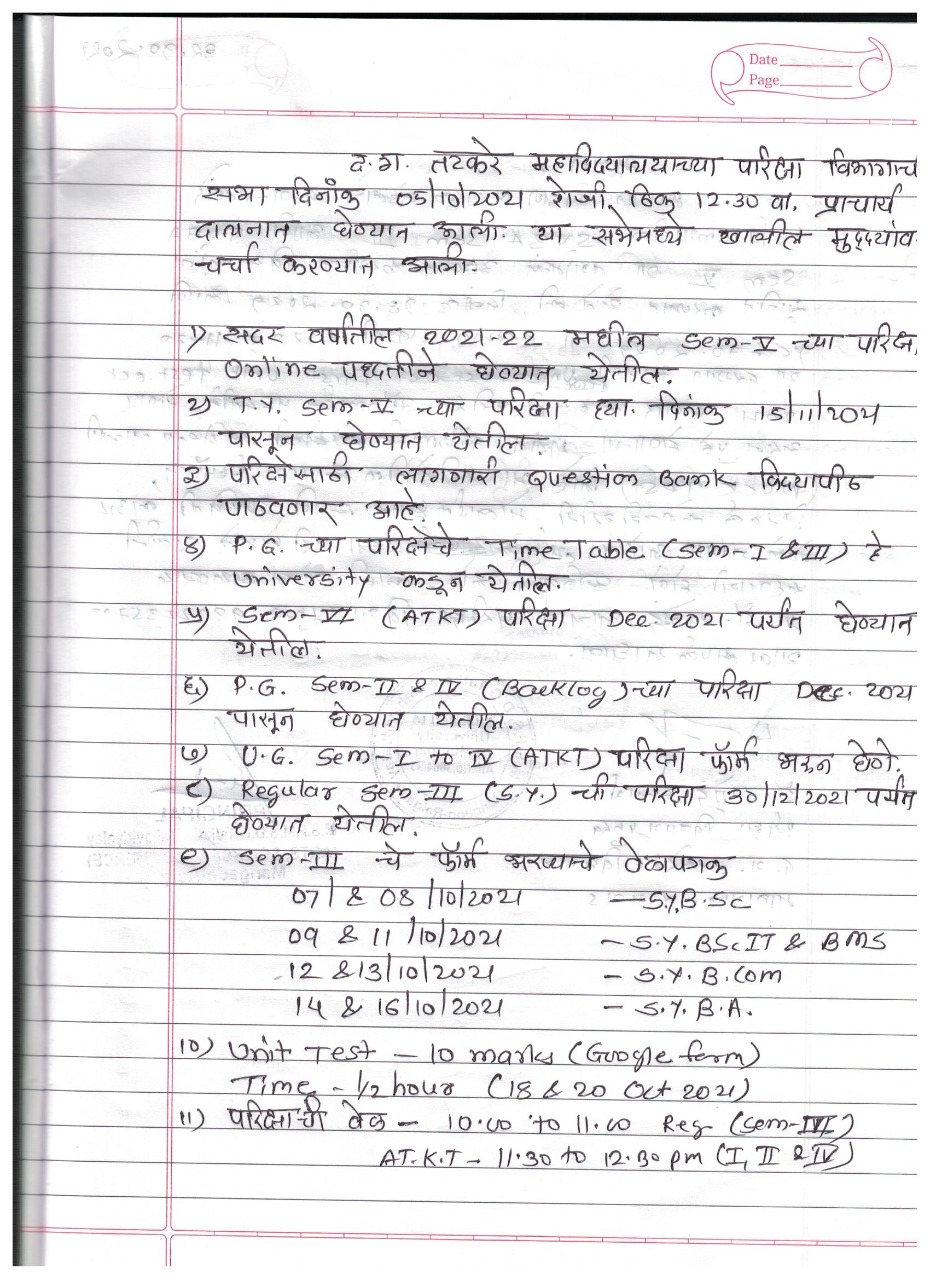 Date
Page
द.ग. तटकरे महाविद्यालयाच्या परिक्षा विभागाच
सभा दिनाँक 05/10/2021 रोजी, ठिक 12.30 वा. प्राचार्य
दालनात घेण्यात आली. या सभेमध्ये खालील मुद्द्यांव
चर्चा करण्यात आली.
१) सदर वर्षातील 2021-22 मधील Sem-V च्या परिक्षा
Online पध्दतीने घेण्यात येतील.
२) T.Y. Sem-V च्या परिक्षा ह्या दिनांक 15/11/2021
पासून घेण्यात येतील.
३) परिक्षेसाठी लागणारी Question Bank विद्यापीठ
पाठवणार आहे.
४) P.G. च्या परिक्षेचे Time Table (Sem-I & III) हे
University कडून येतील.
५) Sem-VI (ATKT) परिक्षा Dec. 2021 पर्यंत घेण्यात
येतील.
६) P.G. Sem-II & IV (Backlog) च्या परिक्षा Dec. 2021
पासून घेण्यात येतील.
७) U.G. Sem-I to IV (ATKT) परिक्षा फॉर्म भरुन घेणे.
८) Regular Sem-III (S.Y.) ची परिक्षा 30/12/2021 पर्यंत
घेण्यात येतील.
९) Sem-III चे फॉर्म भरण्याचे वेळापत्रक
07/ & 08/10/2021 — S.Y.B.Sc
09 & 11/10/2021 - S.Y. BSc IT & BMS
12 & 13/10/2021 - S.Y. B.Com
14 & 16/10/2021 - S.Y. B.A.
10) Unit Test - 10 marks (Google form)
Time - 1/2 hour (18 & 20 Oct 2021)
11) परिक्षाची वेळ - 10.00 to 11.00 Reg-
AT.K.T - 11.30 to 12.30 pm (I, II & IV)